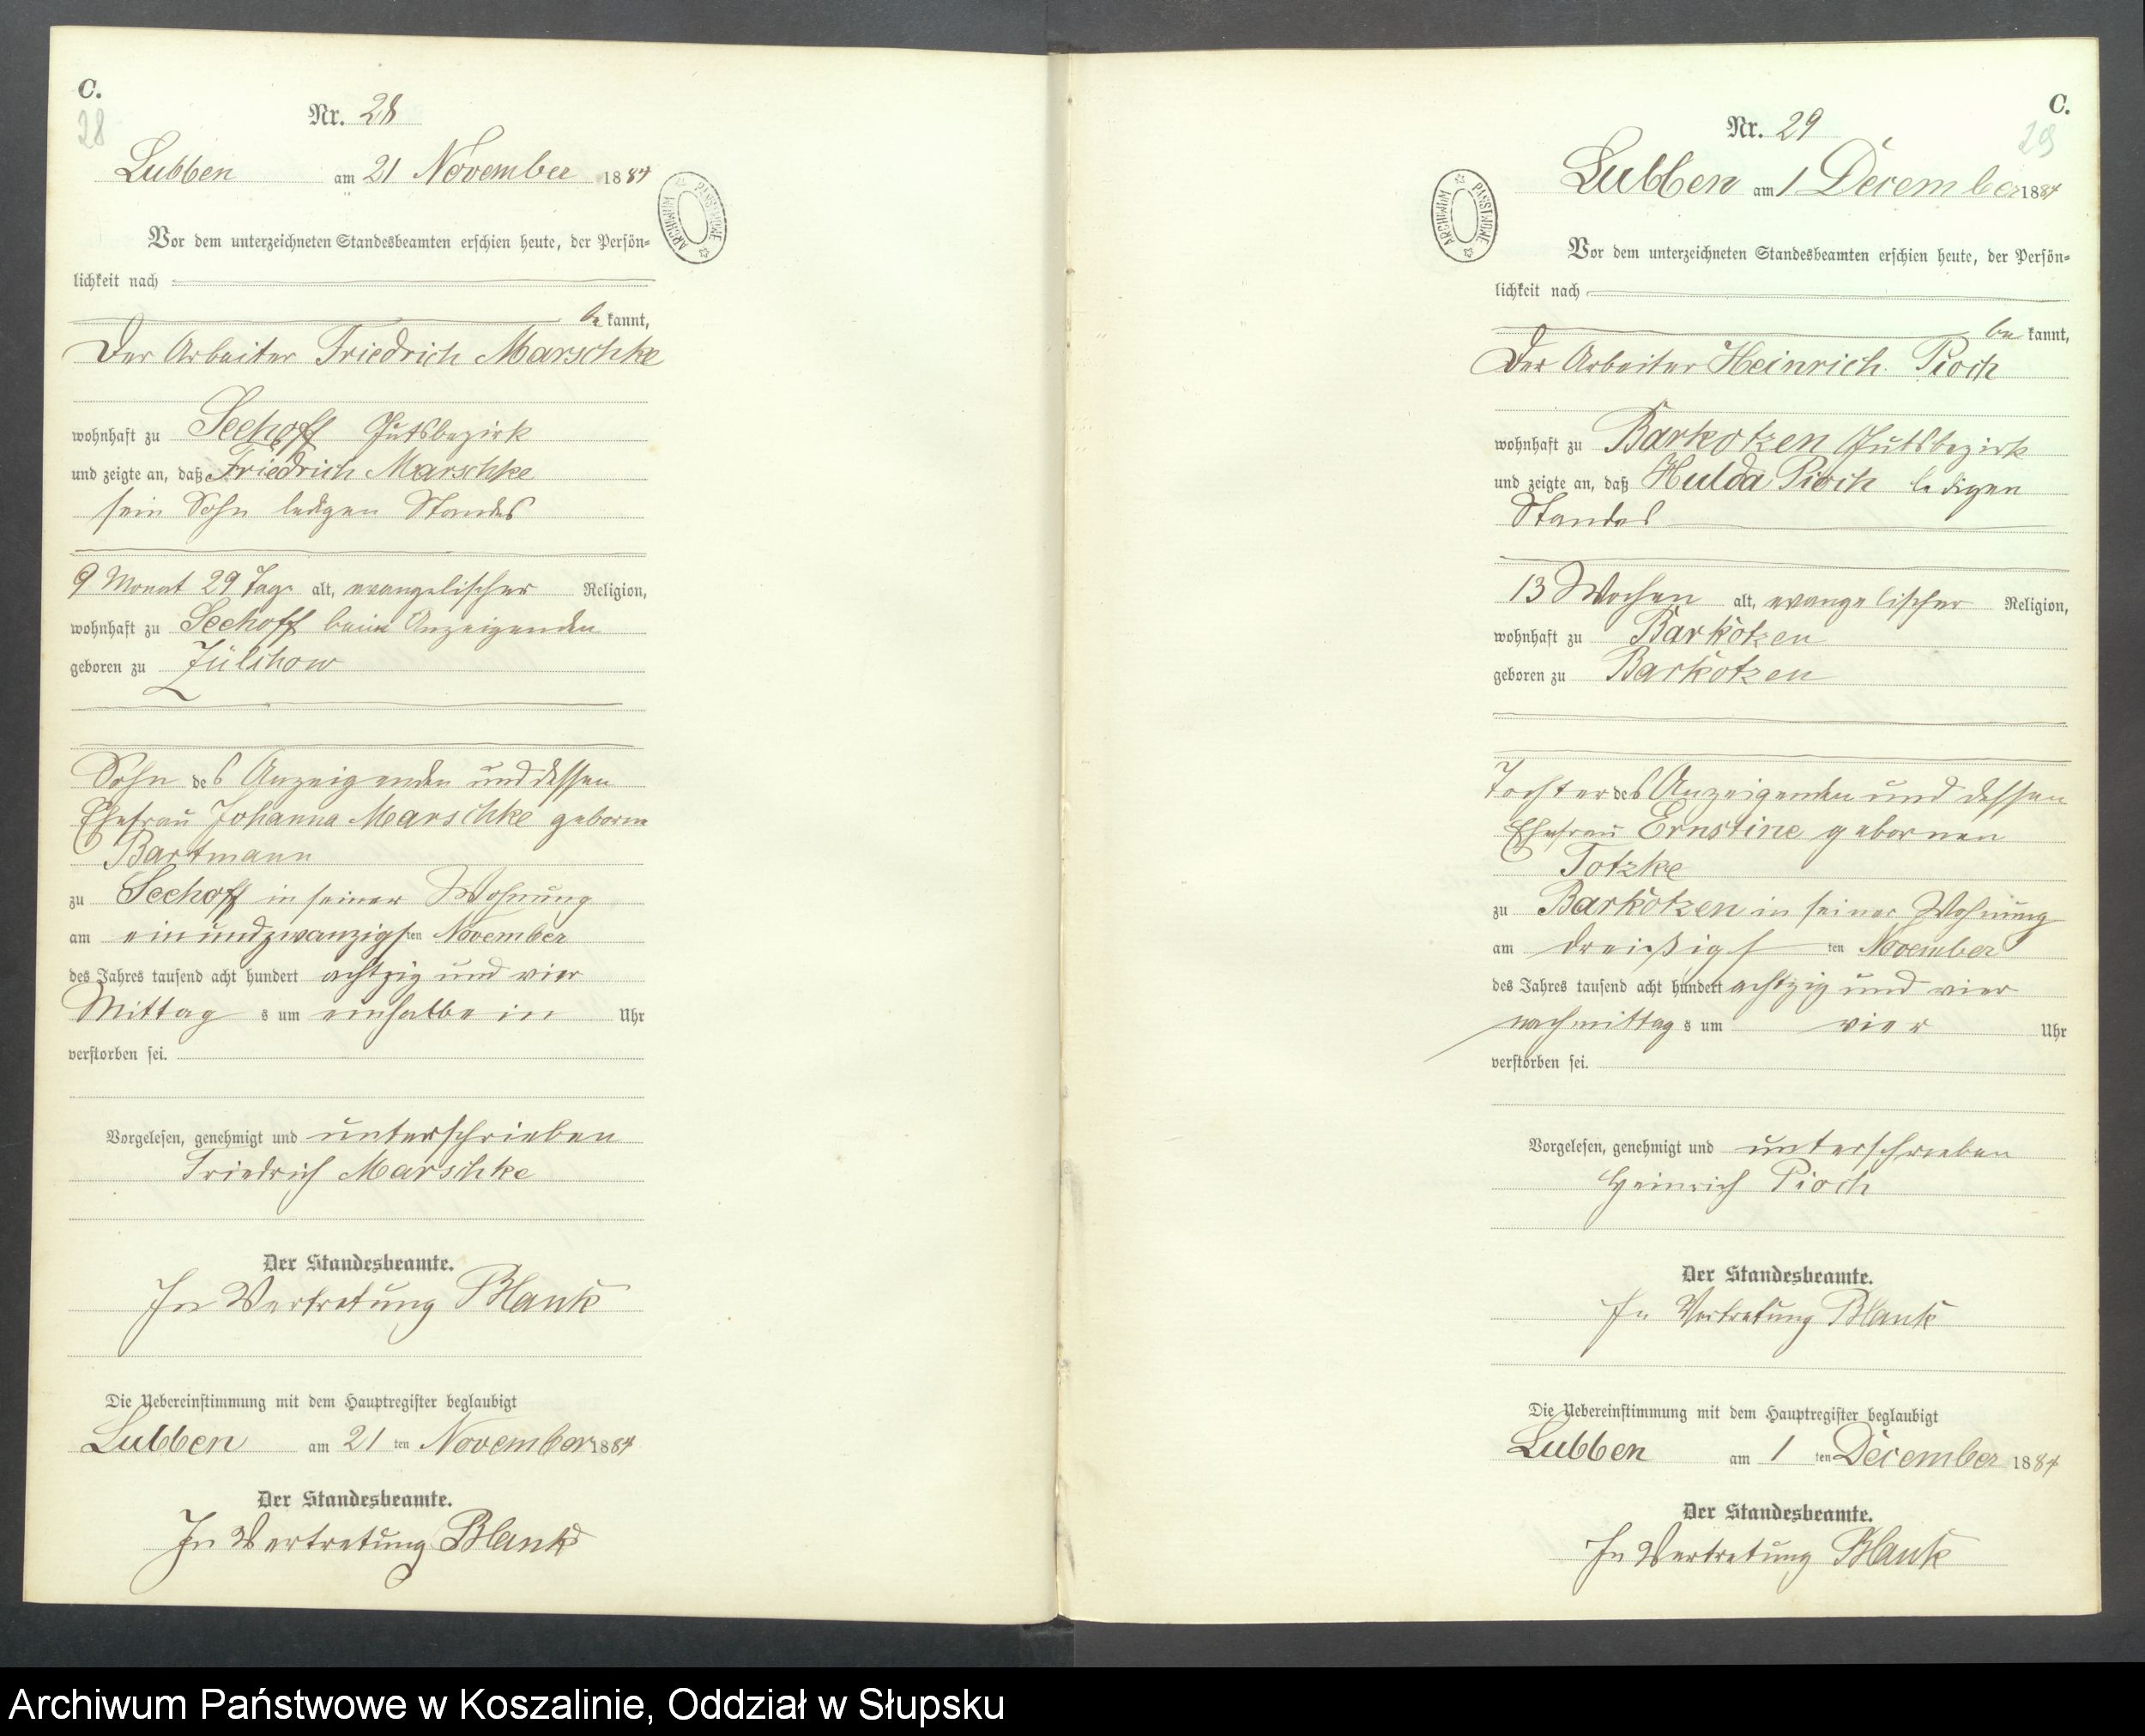 C.
28
Nr. 28
Lubben am 21 November 1884
ARCHIWUM PAŃSTWOWE
Vor dem unterzeichneten Standesbeamten erschien heute, der Persön-
lichkeit nach
be kannt,
Der Arbeiter Friedrich Marschke
wohnhaft zu Seehoff Gutsbezirk
und zeigte an, daß Friedrich Marschke
sein Sohn ledigen Standes
9 Monat 29 Tage alt, evangelischer Religion,
wohnhaft zu Seehoff beim Anzeigenden
geboren zu Zülchow
Sohn des Anzeigenden und dessen
Ehefrau Johanna Marschke geborne
Bartmann
zu Seehoff in seiner Wohnung
am einundzwanzigsten November
des Jahres tausend acht hundert achtzig und vier
Mittag s um einhalb ein Uhr
verstorben sei.
Vorgelesen, genehmigt und unterschrieben
Friedrich Marschke
Der Standesbeamte.
In Vertretung Blank
Die Uebereinstimmung mit dem Hauptregister beglaubigt
Lubben am 21 ten November 1884
Der Standesbeamte.
In Vertretung Blank
C.
29
Nr. 29
Lubben am 1 December 1884
ARCHIWUM PAŃSTWOWE
Vor dem unterzeichneten Standesbeamten erschien heute, der Persön-
lichkeit nach
be kannt,
Der Arbeiter Heinrich Pioch
wohnhaft zu Barkotzen Gutsbezirk
und zeigte an, daß Hulda Pioch ledigen
Standes
13 Wochen alt, evangelischer Religion,
wohnhaft zu Barkotzen
geboren zu Barkotzen
Tochter des Anzeigenden und dessen
Ehefrau Ernstine gebornen
Totzke
zu Barkotzen in seiner Wohnung
am dreißigs ten November
des Jahres tausend acht hundert achtzig und vier
nachmittag s um vier Uhr
verstorben sei.
Vorgelesen, genehmigt und unterschrieben
Heinrich Pioch
Der Standesbeamte.
In Vertretung Blank
Die Uebereinstimmung mit dem Hauptregister beglaubigt
Lubben am 1 ten December 1884
Der Standesbeamte.
In Vertretung Blank
Archiwum Państwowe w Koszalinie, Oddział w Słupsku